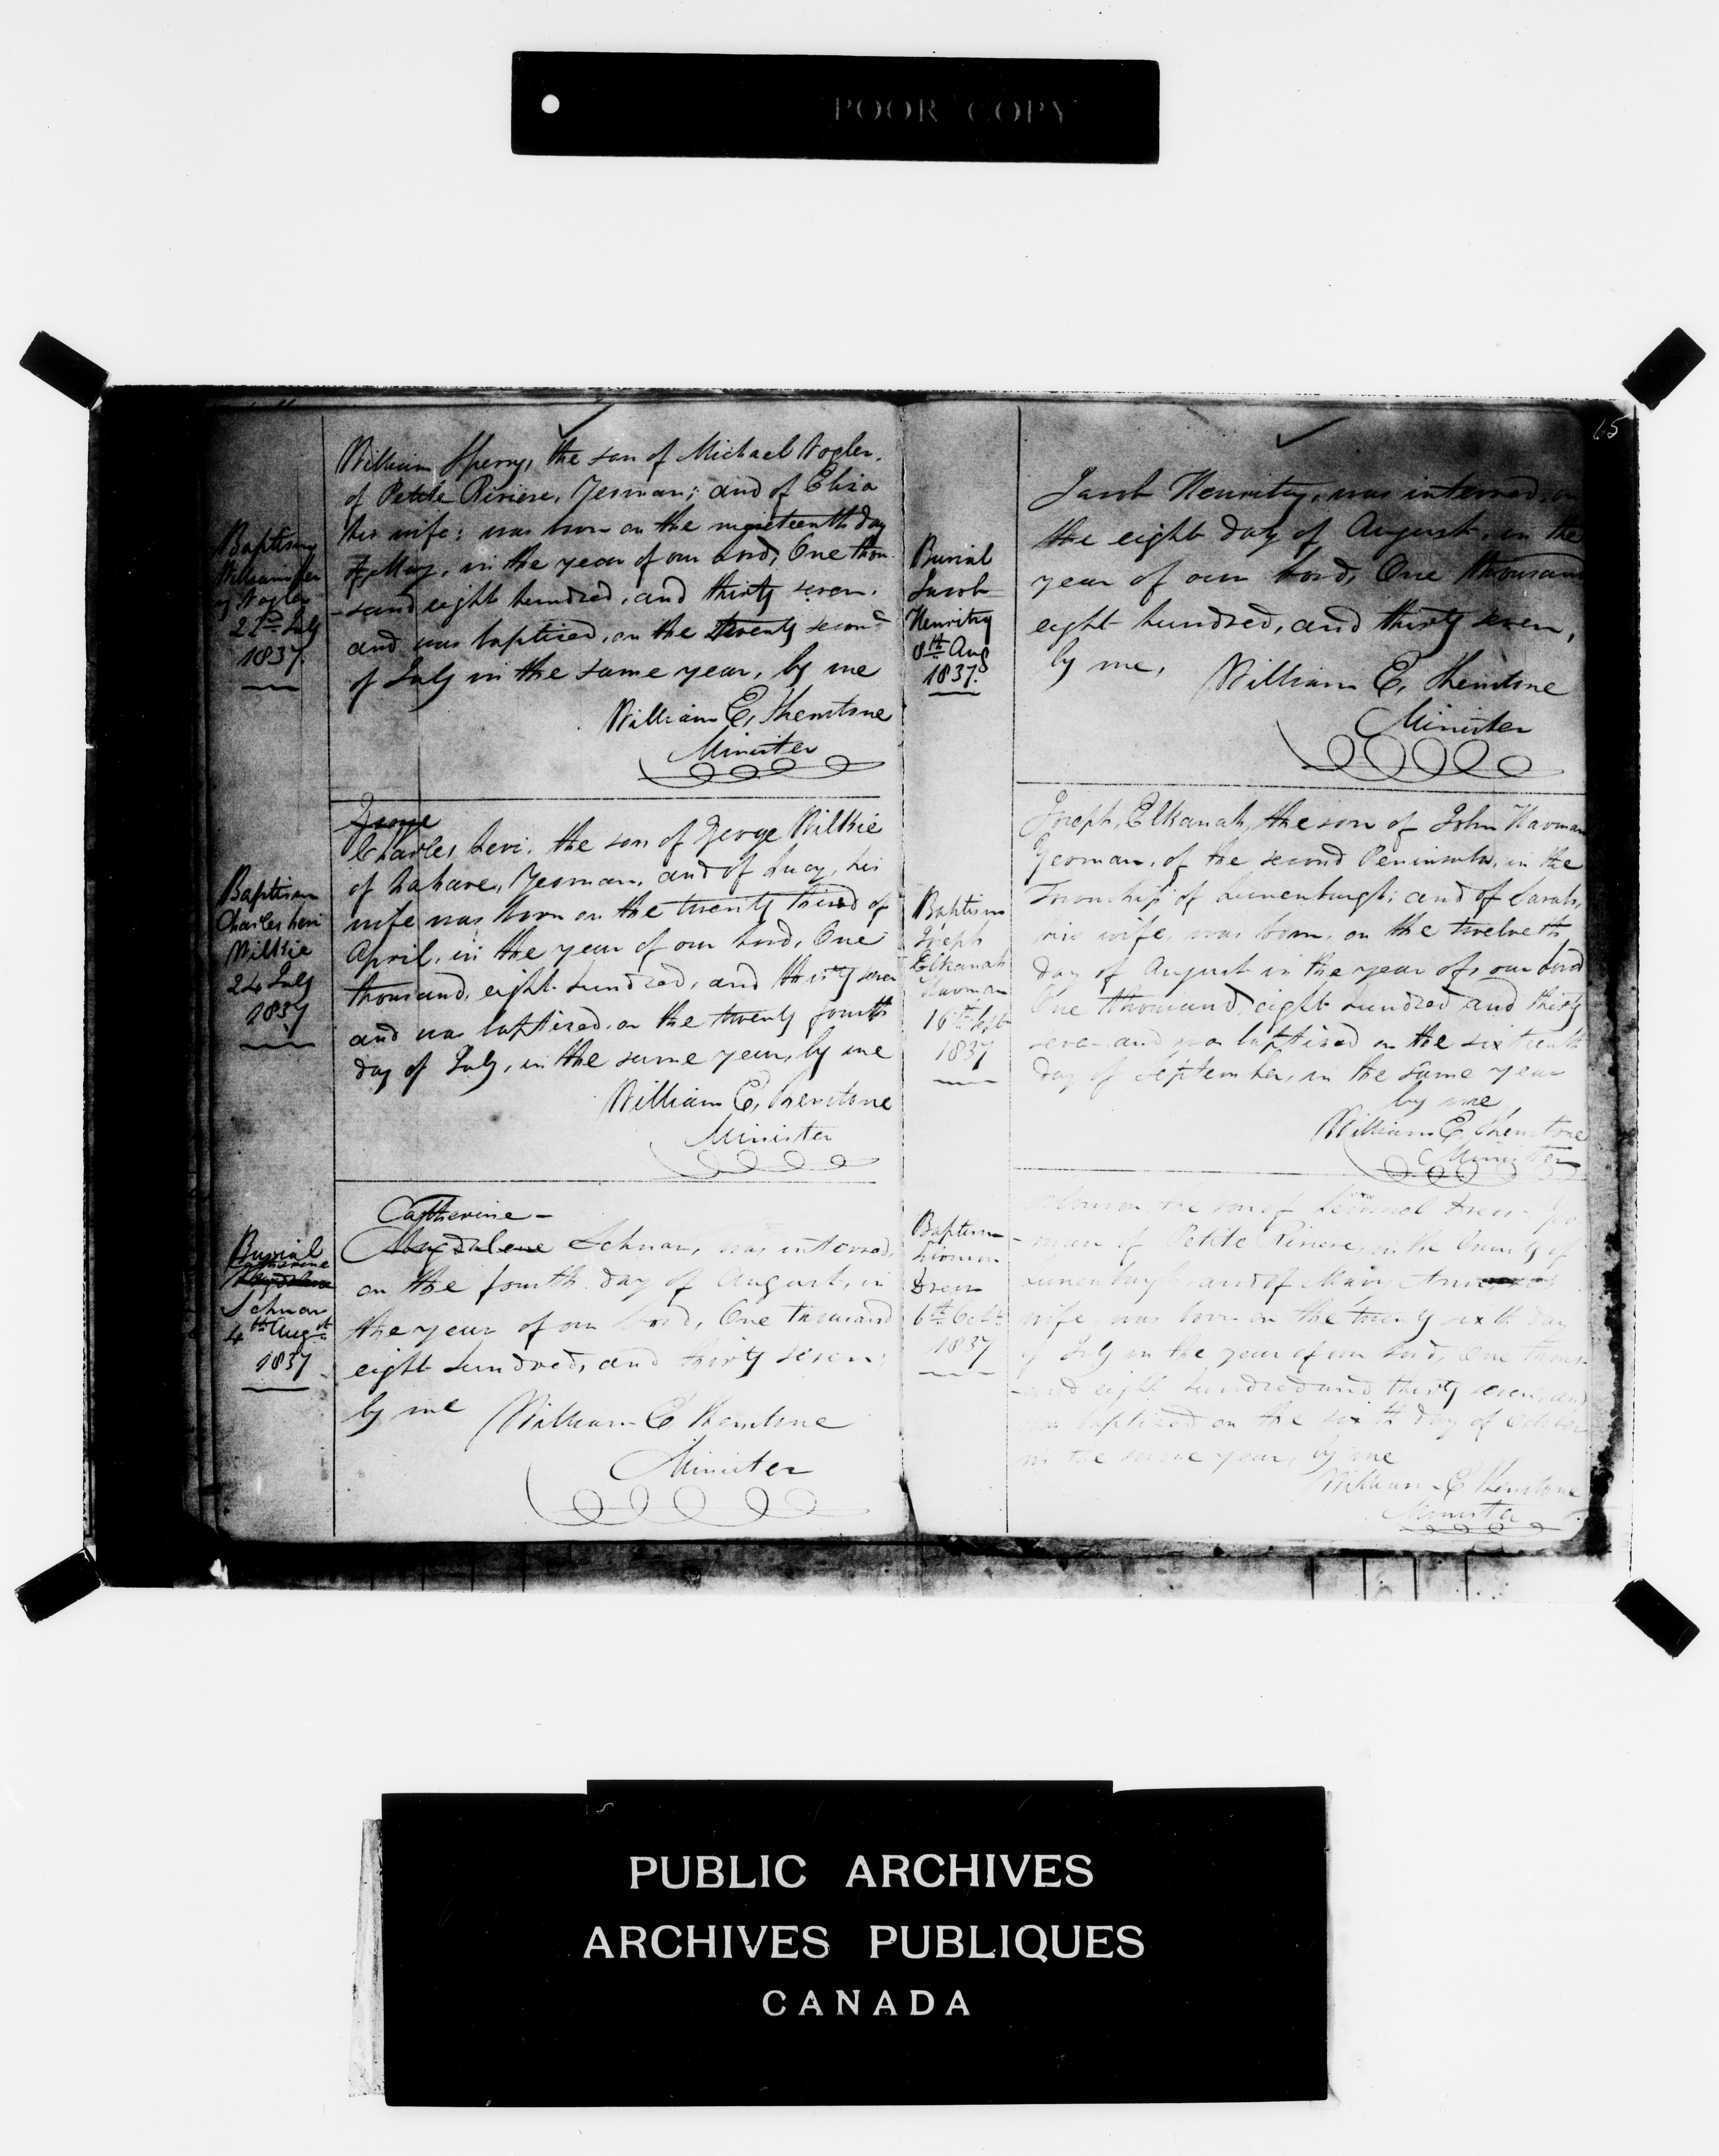 POOR COPY
65
Baptism
William Sper
ry Vogler
22nd July
1837.
William Sperry, the son of Michael Vogler,
of Petite Riviere, Yeoman; and of Eliza
his wife; was born on the nineteenth day
of May, in the year of our Lord, One thou
-sand eight hundred, and thirty seven.
and was baptized, on the twenty second
of July in the same year, by me
William E. Shenstone
Minister
Baptism
Charles Levi
Wilkie
24 July
1837
George
Charles Levi, the son of George Wilkie
of Lahave, Yeoman, and of Lucy, his
wife was born on the twenty third of
April, in the year of our Lord, One
thousand, eight hundred, and thirty seven
and was baptized, on the twenty fourth
day of July, in the same year, by me
William E. Shenstone
Minister
Burial
Catherine
Magdalene
Schnar
4th Augst
1837
Catherine -
Magdalene Schnar, was interred,
on the fourth day of August, in
the year of our Lord, One thousand
eight hundred, and thirty seven;
by me William E Shenstone
Minister
Burial
Jacob
Henritzy
8th Aug
1837.
Jacob Henritzy, was interred, on
the eight day of August, in the
year of our Lord, One thousand
eight hundred, and thirty seven,
by me, William E. Shenstone
Minister
Baptism
Joseph
Elkanah
Harman
16th Sept
1837
Joseph, Elkanah, the son of John Harman
Yeoman, of the second Peninsula, in the
Township of Lunenburgh; and of Sarah,
his wife, was born, on the twelveth
day of August in the year of our Lord
One thousand, eight hundred and thirty
seven and was baptized on the sixteenth
day of September, in the same year
by me
William E. Shenstone
Minister
Baptism
Drew
6th Octr
1837
the son of Drew, Yeo
-man of Petite Riviere, in the County of
Lunenburgh and of Mary Ann
wife, was born on the twenty sixth day
of July in the year of our Lord, One thous-
-and eight hundred and thirty seven, and
was baptized on the sixth day of October
in the same year, by me
William E Shenstone
Minister
PUBLIC ARCHIVES
ARCHIVES PUBLIQUES
CANADA